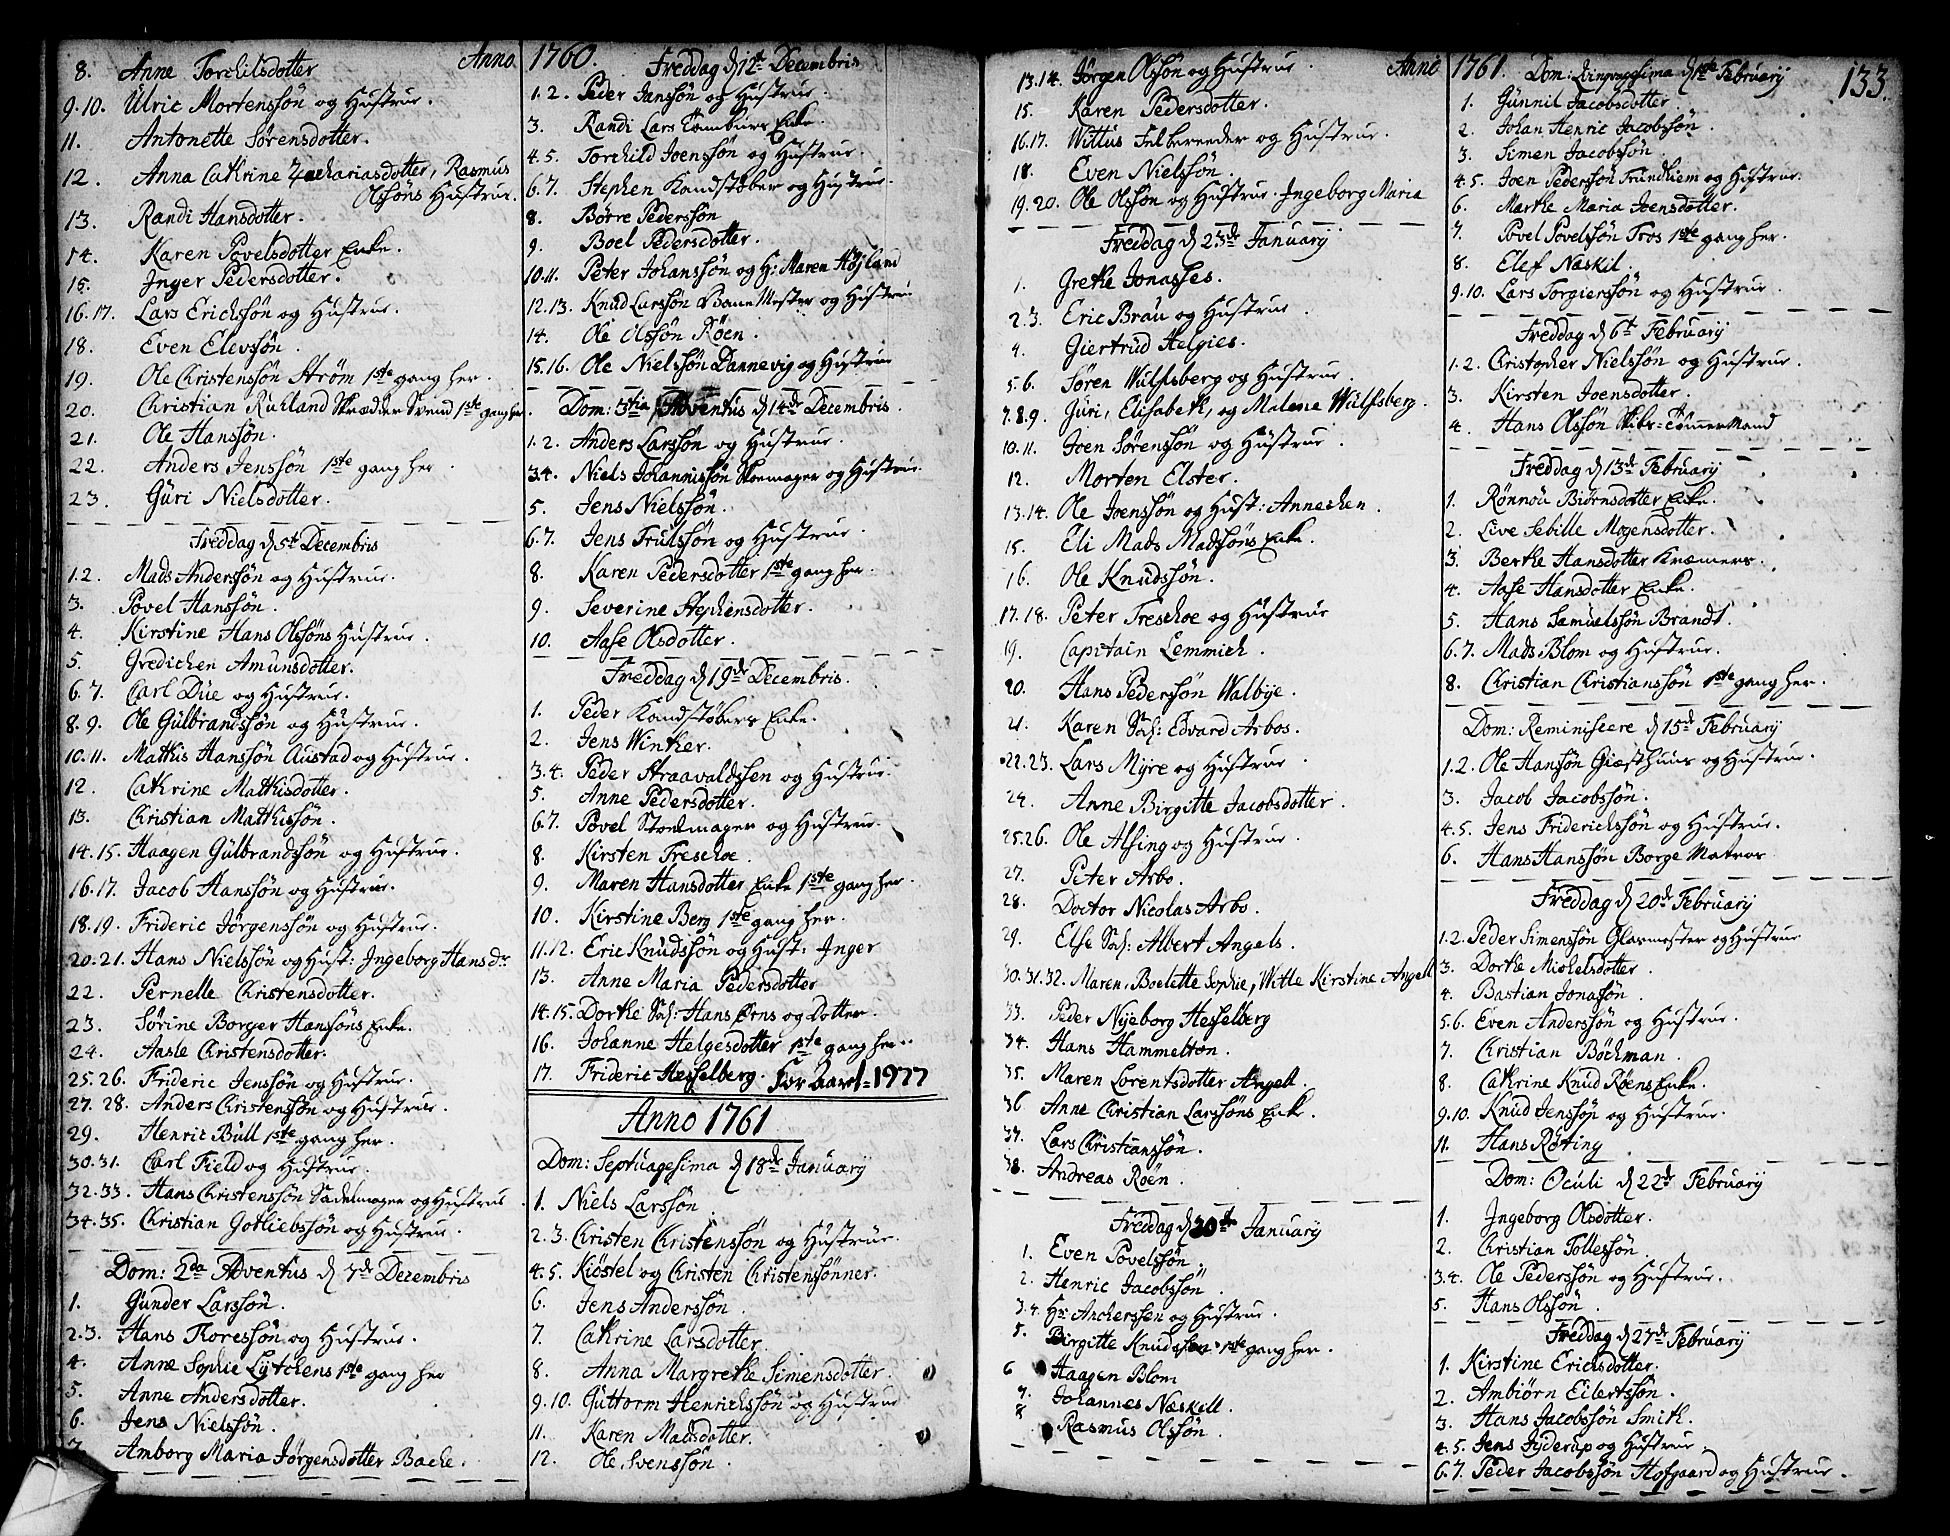 Anno 1760.
8. Anne Torchilsdotter
9.10. Ulric Mortenssön og Hustrue.
11. Antonette Sörensdotter.
12. Anna Cathrine Zachariasdotter, Rasmus
Olssöns Hustrue.
13. Randi Hansdotter.
14. Karen Povelsdotter Enke.
15. Inger Pedersdotter.
16.17. Lars Erichssön og Hustrue.
18. Even Elevssön.
19. Ole Christenssön Ström 1ste gang her.
20. Christian Ruhland Skrædder Svend 1ste gang her.
21. Ole Hanssön.
22. Anders Jenssön 1ste gang her.
23. Guri Nielsdotter.
Freddag d 5te Decembris
1.2. Mads Anderssön og Hustrue.
3. Povel Hanssön.
4. Kirstine Hans Olssöns Hustrue.
5. Gredichen Amunsdotter.
6.7. Carl Düe og Hustrue.
8.9. Ole Gulbrandssön og Hustrue.
10.11. Mathis Hanssön Austad og Hustrue.
12. Cathrine Mathisdotter.
13. Christian Mathissön.
14.15. Haagen Gulbrandssön og Hustrue.
16.17. Jacob Hanssön og Hustrue.
18.19. Frideric Jörgenssön og Hustrue.
20.21. Hans Nielssön og Hust: Ingeborg Hansdr
22. Pernelle Christensdotter.
23. Sörine Borger Hanssöns Enke.
24. Aasle Christensdotter.
25.26. Frideric Jenssön og Hustrue.
27.28. Anders Christenssön og Hustrue.
29. Henric Bull 1ste gang her.
30.31. Carl Field og Hustrue.
32.33. Hans Christenssön Sadelmager og Hustrue
34.35. Christian Gotliebssön og Hustrue.
Dom: 2da Adventus d 7de Decembris
1. Gunder Larssön.
2.3. Hans Thoressön og Hustrue.
4. Anne Sophie Lytchens 1ste gang her
5. Anne Andersdotter.
6. Jens Nielssön.
7. Amborg Maria Jörgensdotter Bache.
Freddag d 12te Decembris
1.2. Peder Janssön og Hustrue.
3. Randi Lars Tamburs Enke.
4.5. Torchild Joenssön og Hustrue.
6.7. Stephen Kandstöber og Hustrue.
8. Börre Pederssön
9. Boel Pedersdotter.
10.11. Peter Johanssön og H: Maren Höjland
12.13. Knud Larssön og Hustrue
14. Ole Olssön Röen.
15.16. Ole Nielssön Dannevig og Hustrue
Dom: 3tia Adventus d 14de Decembris.
1.2. Anders Larssön og Hustrue.
3.4. Niels Johannissön Skoemager og Hustrue.
5. Jens Nielssön.
6.7. Jens Trulssön og Hustrue.
8. Karen Pedersdotter 1ste gang her.
9. Severine Stephensdotter.
10. Aase Olsdotter.
Freddag d 19de Decembris.
1. Peder Kandstöbers Enke.
2. Jens Winther.
3.4. Peder Straavaldssen og Hustrue.
5. Anne Pedersdotter.
6.7. Povel Stoelmager og Hustrue.
8. Kirsten Treschoe.
9. Maren Hansdotter Enke 1ste gang her.
10. Kirstine Berg 1ste gang her.
11.12. Eric Knudssön og Hust: Inger
13. Anne Maria Pedersdotter
14.15. Dorthe Sal: Hans Örns og Dotter.
16. Johanne Helgesdotter 1ste gang her.
17. Frideric Hesselberg. for Aaret = 1977
Anno 1761
Dom: Septuagesima d 18de January
1. Niels Larssön.
2.3. Christen Christenssön og Hustrue.
4.5. Kiöstel og Christen Christensönner.
6. Jens Anderssön.
7. Cathrine Larsdotter.
8. Anna Margrethe Simensdotter.
9.10. Guttorm Henrichssön og Hustrue
11. Karen Madsdotter.
12. Ole Svenssön.
Anno 1761.
133.
13.14. Jörgen Olssön og Hustrue.
15. Karen Pedersdotter.
16.17. Wittus Felbereeder og Hustrue.
18. Even Nielssön.
19.20. Ole Olssön og Hustrue Ingeborg Maria
Freddag d 23de January
1. Grethe Jonasses.
2.3. Eric Brau og Hustrue.
4. Giertrud Helgies.
5.6. Sören Wulfsberg og Hustrue.
7.8.9. Juri, Elisabeth, og Malene Wulfsberg.
10.11. Joen Sörenssön og Hustrue.
12. Morten Elster.
13.14. Ole Joenssön og Hust: Annechen.
15. Eli Mads Madssöns Enke.
16. Ole Knudssön.
17.18. Peter Treschoe og Hustrue
19. Capitain Lemmich.
20. Hans Pederssön Walbye.
21. Karen Sal: Edvard Arbos.
22.23. Lars Myre og Hustrue.
24. Anne Birgitte Jacobsdotter.
25.26. Ole Alsing og Hustrue.
27. Peter Arbo.
28. Doctor Nicolas Arbo.
29. Else Sal: Albert Angels.
30.31.32. Maren, Boelette Sophie, Witte Kirstine Angell
33. Peder Nyeborg Hesselberg
34. Hans Hammelton.
35. Maren Lorentsdotter Angell.
36. Anne Christian Larssöns Enk.
37. Lars Christianssön.
38. Andreas Röen.
Freddag d 30de January
1. Even Povelssön.
2. Henric Jacobssön.
3.4. Hr: Ancherssen og Hustrue.
5. Birgitte Knudssen 1ste gang her.
6 Haagen Blom
7. Johannes Næskell.
8 Rasmus Olssön.
Dom: Qvinqvagesima d 1ste February
1. Gunnil Jacobsdotter.
2. Johan Henric Jacobssön.
3. Simen Jacobssön.
4.5. Joen Pederssön Trundhiem og Hustrue.
6. Marthe Maria Joensdotter.
7. Povel Povelssön Tros 1ste gang her.
8. Elef Næskil.
9.10. Lars Torgierssön og Hustrue.
Freddag d 6te February
1.2. Christopher Nielssön og Hustrue.
3. Kirsten Joensdotter.
4. Hans Olssön Skibs-Tömmermand
Freddag d 13de February
1. Rönnou Biörnsdotter Enke.
2. Live Sebille Mogensdotter.
3. Berthe Hansdotter Kræmmers.
4. Aase Hansdotter Enke.
5. Hans Samuelssön Brandt.
6.7. Mads Blom og Hustrue.
8. Christian Christianssön 1ste gang her.
Dom: Reminiscere d 15de February
1.2. Ole Hanssön Giæsthuus og Hustrue.
3. Jacob Jacobssön.
4.5. Jens Friderichssön og Hustrue.
6. Hans Hanssön Borge Matros
Freddag d 20de February
1.2. Peder Simenssön Glarmester og Hustrue
3. Dorthe Michelsdotter.
4. Bastian Jonassön.
5.6. Even Anderssön og Hustrue.
7. Christian Böchman.
8. Cathrine Knud Röens Enke.
9.10. Knud Jenssön og Hustrue.
11. Hans Röting
Dom: Oculi d 22de February
1. Ingeborg Olsdotter.
2. Christian Tollessön.
3.4. Ole Pederssön og Hustrue.
5. Hans Olssön.
Freddag d 27de February
1. Kirstine Erichsdotter.
2. Ambiörn Eilertssön.
3. Hans Jacobssön Smith.
4.5. Jens Jyderup og Hustrue.
6.7. Peder Jacobssön Hofgaard og Hustrue.